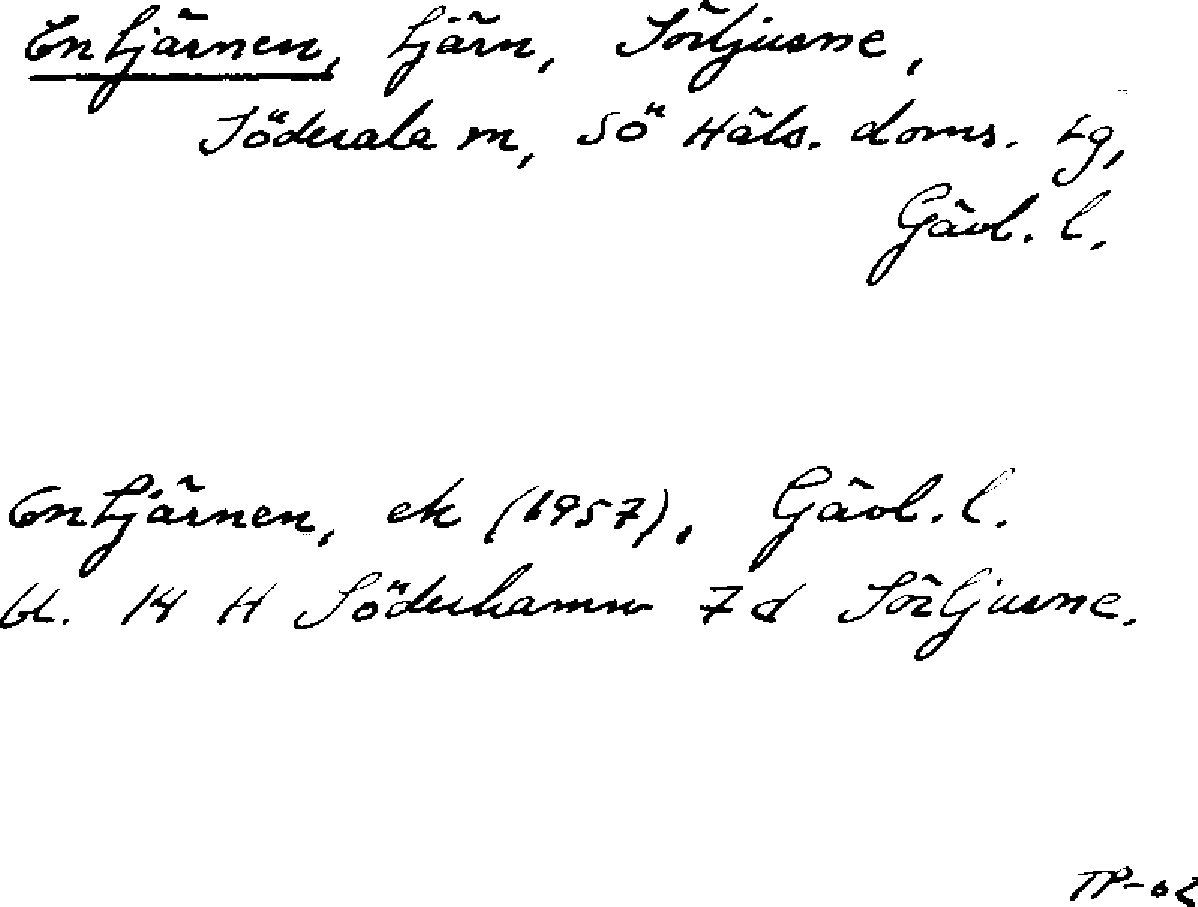 Entjärnen, tjärn, Sörljusne,
Söderala sn, Sö Häls. doms. tg,
Gävl. l.
Entjärnen, ek (1957), Gävl. l.
bl. 14 H Söderhamn 7d Sörljusne.
TP-62